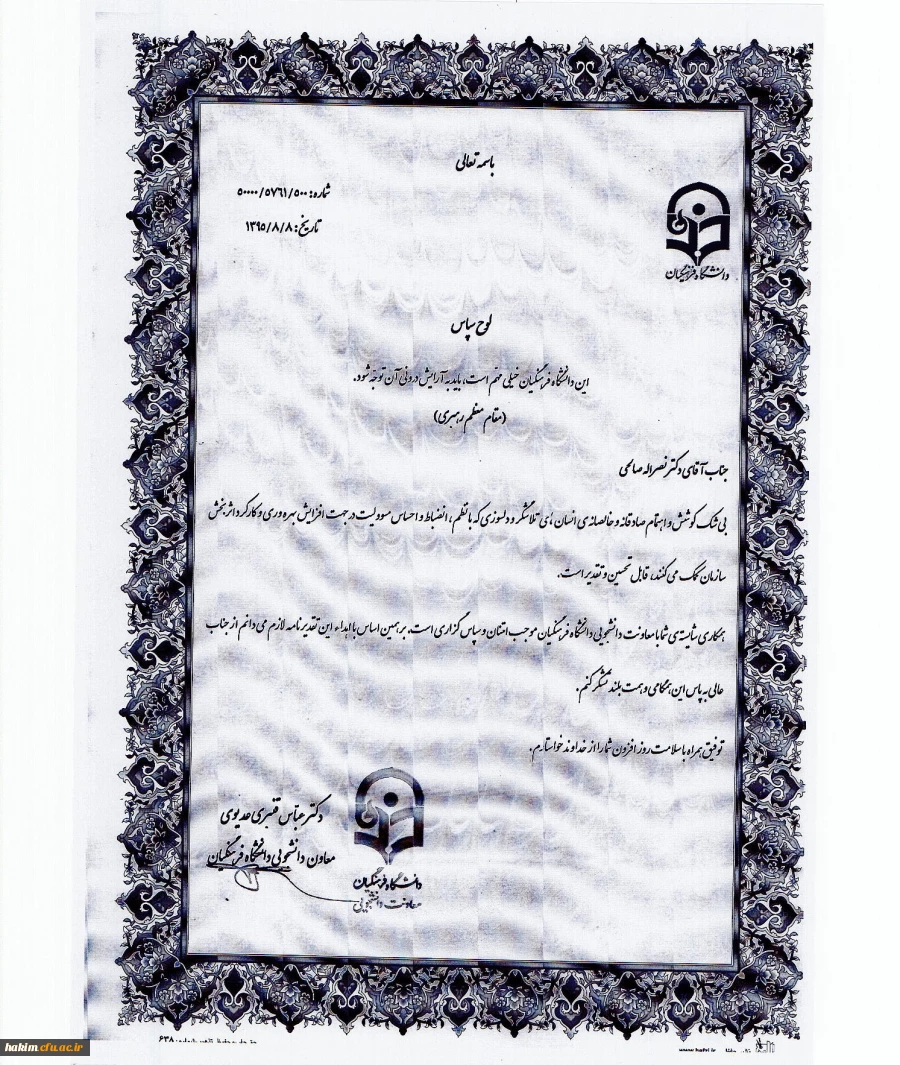 باسمه تعالی
شماره: ۵۰۰۰۰/۵۷۶۱/۵۰۰
تاریخ: ۱۳۹۵/۸/۸
دانشگاه فرهنگیان
لوح سپاس
این دانشگاه فرهنگیان خیلی مهم است، باید به آرایش درونی آن توجه شود.
(مقام معظم رهبری)
جناب آقای دکتر نصراله صالحی
بی شک کوشش و اهتمام صادقانه و خالصانه ی انسان های تلاشگر و دلسوزی که با نظم، انضباط و احساس مسوولیت در جهت افزایش بهره وری و کارکرد اثربخش
سازمان کمک می کنند، قابل تحسین و تقدیر است.
همکاری شایسته ی شما با معاونت دانشجویی دانشگاه فرهنگیان موجب امتنان و سپاس گزاری است. بر همین اساس با اهداء این تقدیرنامه لازم می دانم از جناب
عالی به پاس این همگامی و همت بلند تشکر کنم.
توفیق همراه با سلامت روز افزون شما را از خداوند خواستارم.
دکتر عباس قنبری عدیوی
معاون دانشجویی دانشگاه فرهنگیان
دانشگاه فرهنگیان
معاونت دانشجویی
hakim.cfu.ac.ir
۶۳۸